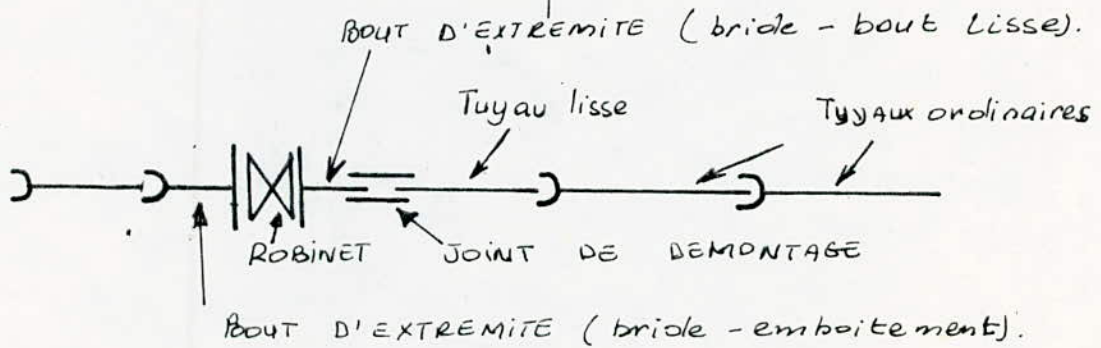 BOUT D'EXTREMITE (bride - bout lisse).
Tuyau lisse
Tyyaux ordinaires
ROBINET
JOINT DE DEMONTAGE
BOUT D'EXTREMITE (bride - emboitement).